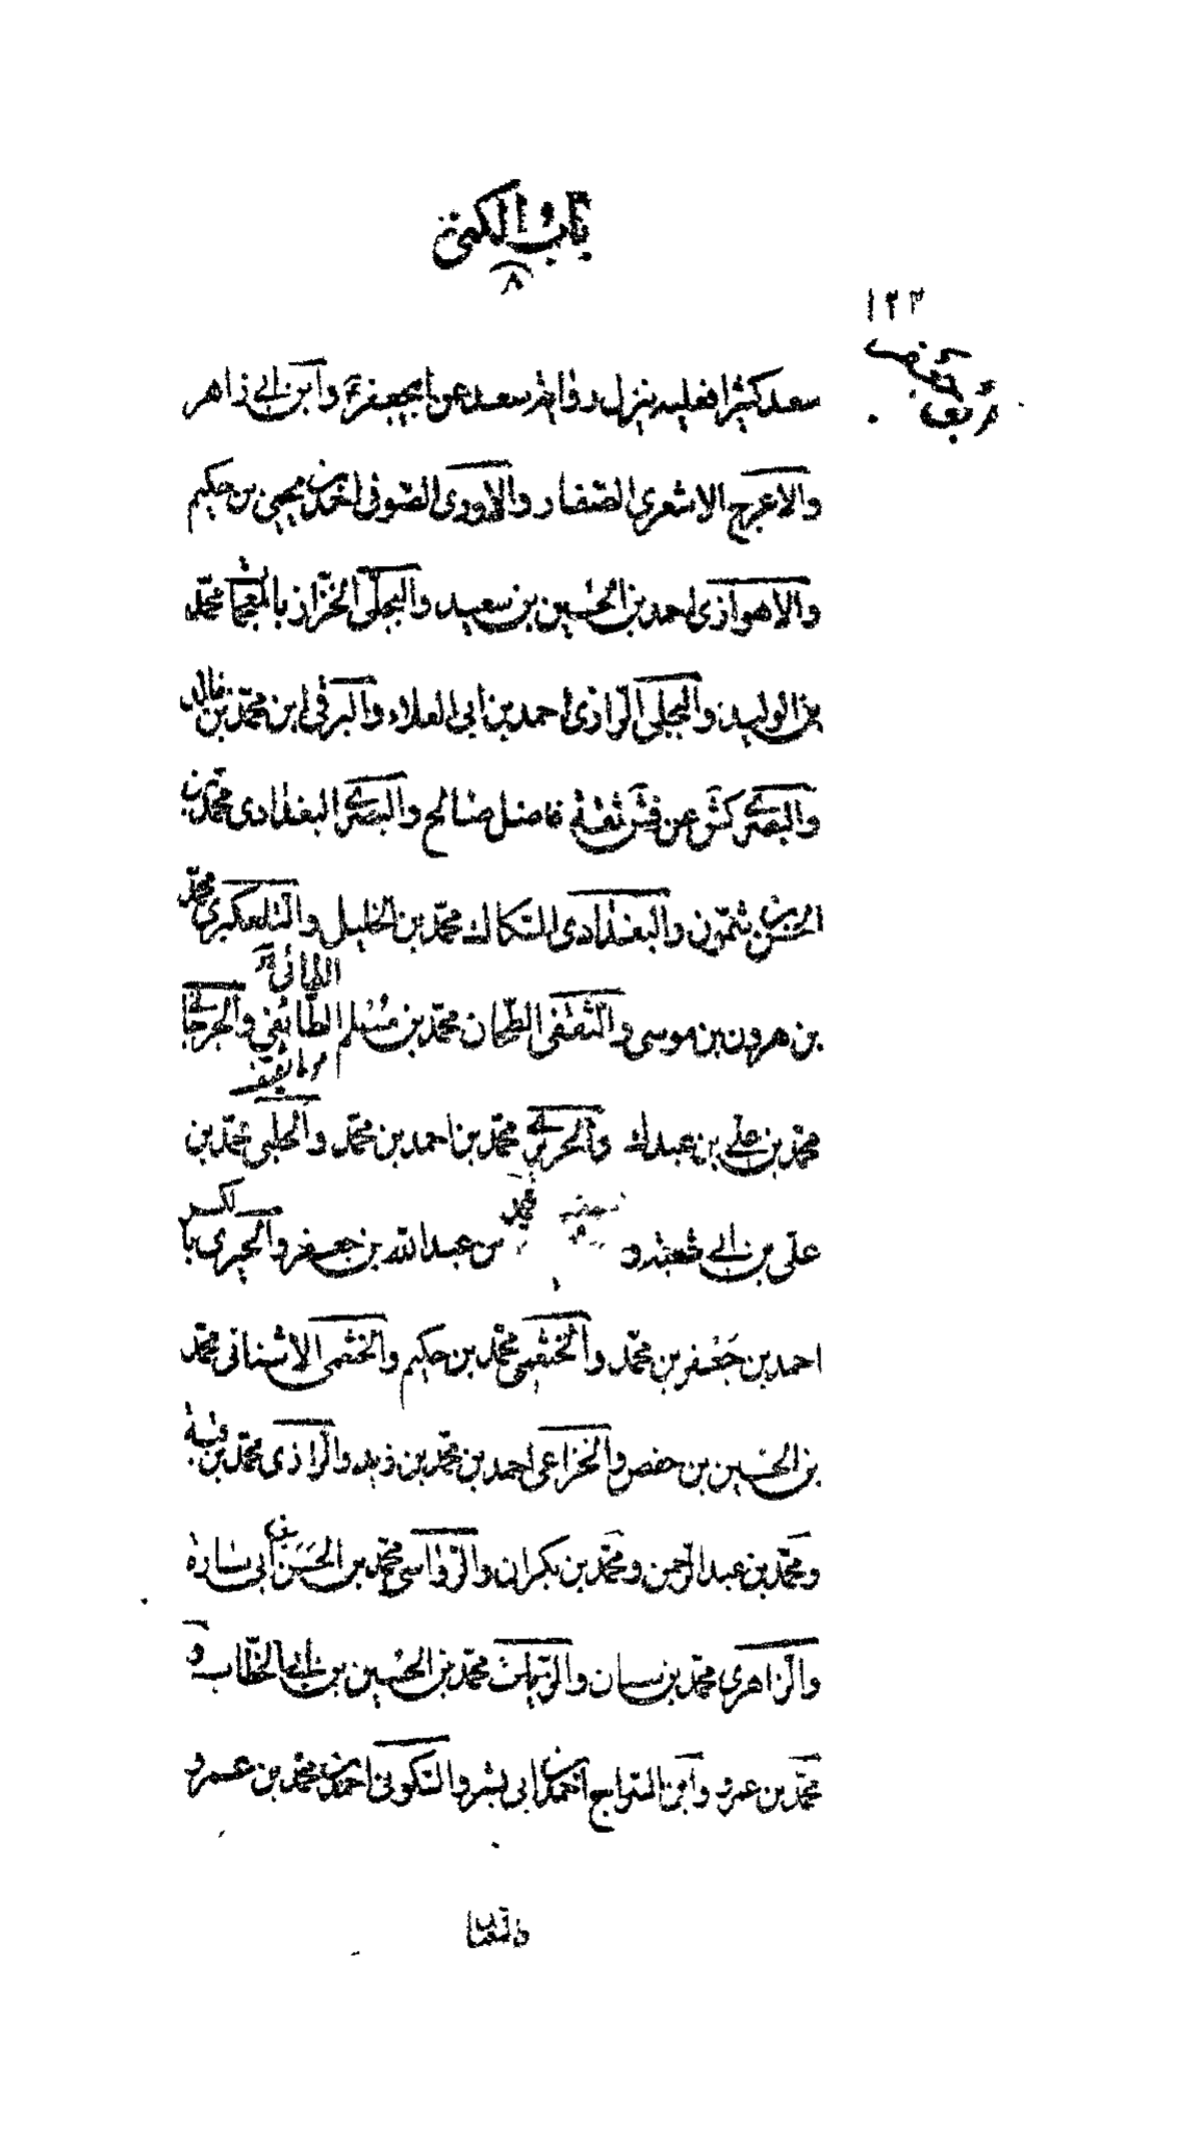 باب الكنى
٨
١٢٣
سعد كثيرا فعليه ينزل رواية سعد عن ابي جعفر وابن ابي زاهر
والاعرج الاشعري الصفار والاودى الصوفى احمد بن يحيى بن حكيم
والاهوازى احمد بن الحسين بن سعيد والبجلى الخزاز بالمعجمات محمد
بن الوليد والبجلى الرازى احمد بن ابى العلاء والبرقى ابن محمد بن خالد
والبصرى كش عن قش ثقة فاضل صالح والبصرى البغدادى محمد بن
الحسن بن شمون والبغدادى السكاك محمد بن الخليل والتلعكبرى محمد
بن هرون بن موسى والثقفى الطحان محمد بن مسلم الطائفي والجرجاني
محمد بن على بن عبدك والحربى محمد بن احمد بن محمد والحلبى محمد بن
على بن ابى شعبة و محمد بن عبدالله بن جعفر والحميرى
احمد بن جعفر بن محمد والخثعمى محمد بن حكيم والخثعمى الاشنانى محمد
بن الحسين بن حفص والخزاعى احمد بن محمد بن زيد والرازى محمد بن قبة
ومحمد بن عبد الرحمن ومحمد بن بكران والرواسى محمد بن الحسن بن ابى سارة
والزاهرى محمد بن سنان والزيات محمد بن الحسين بن ابى الخطاب و
محمد بن عمرو وابن السراج احمد بن ابى بشر والسكونى احمد بن محمد بن عمرو